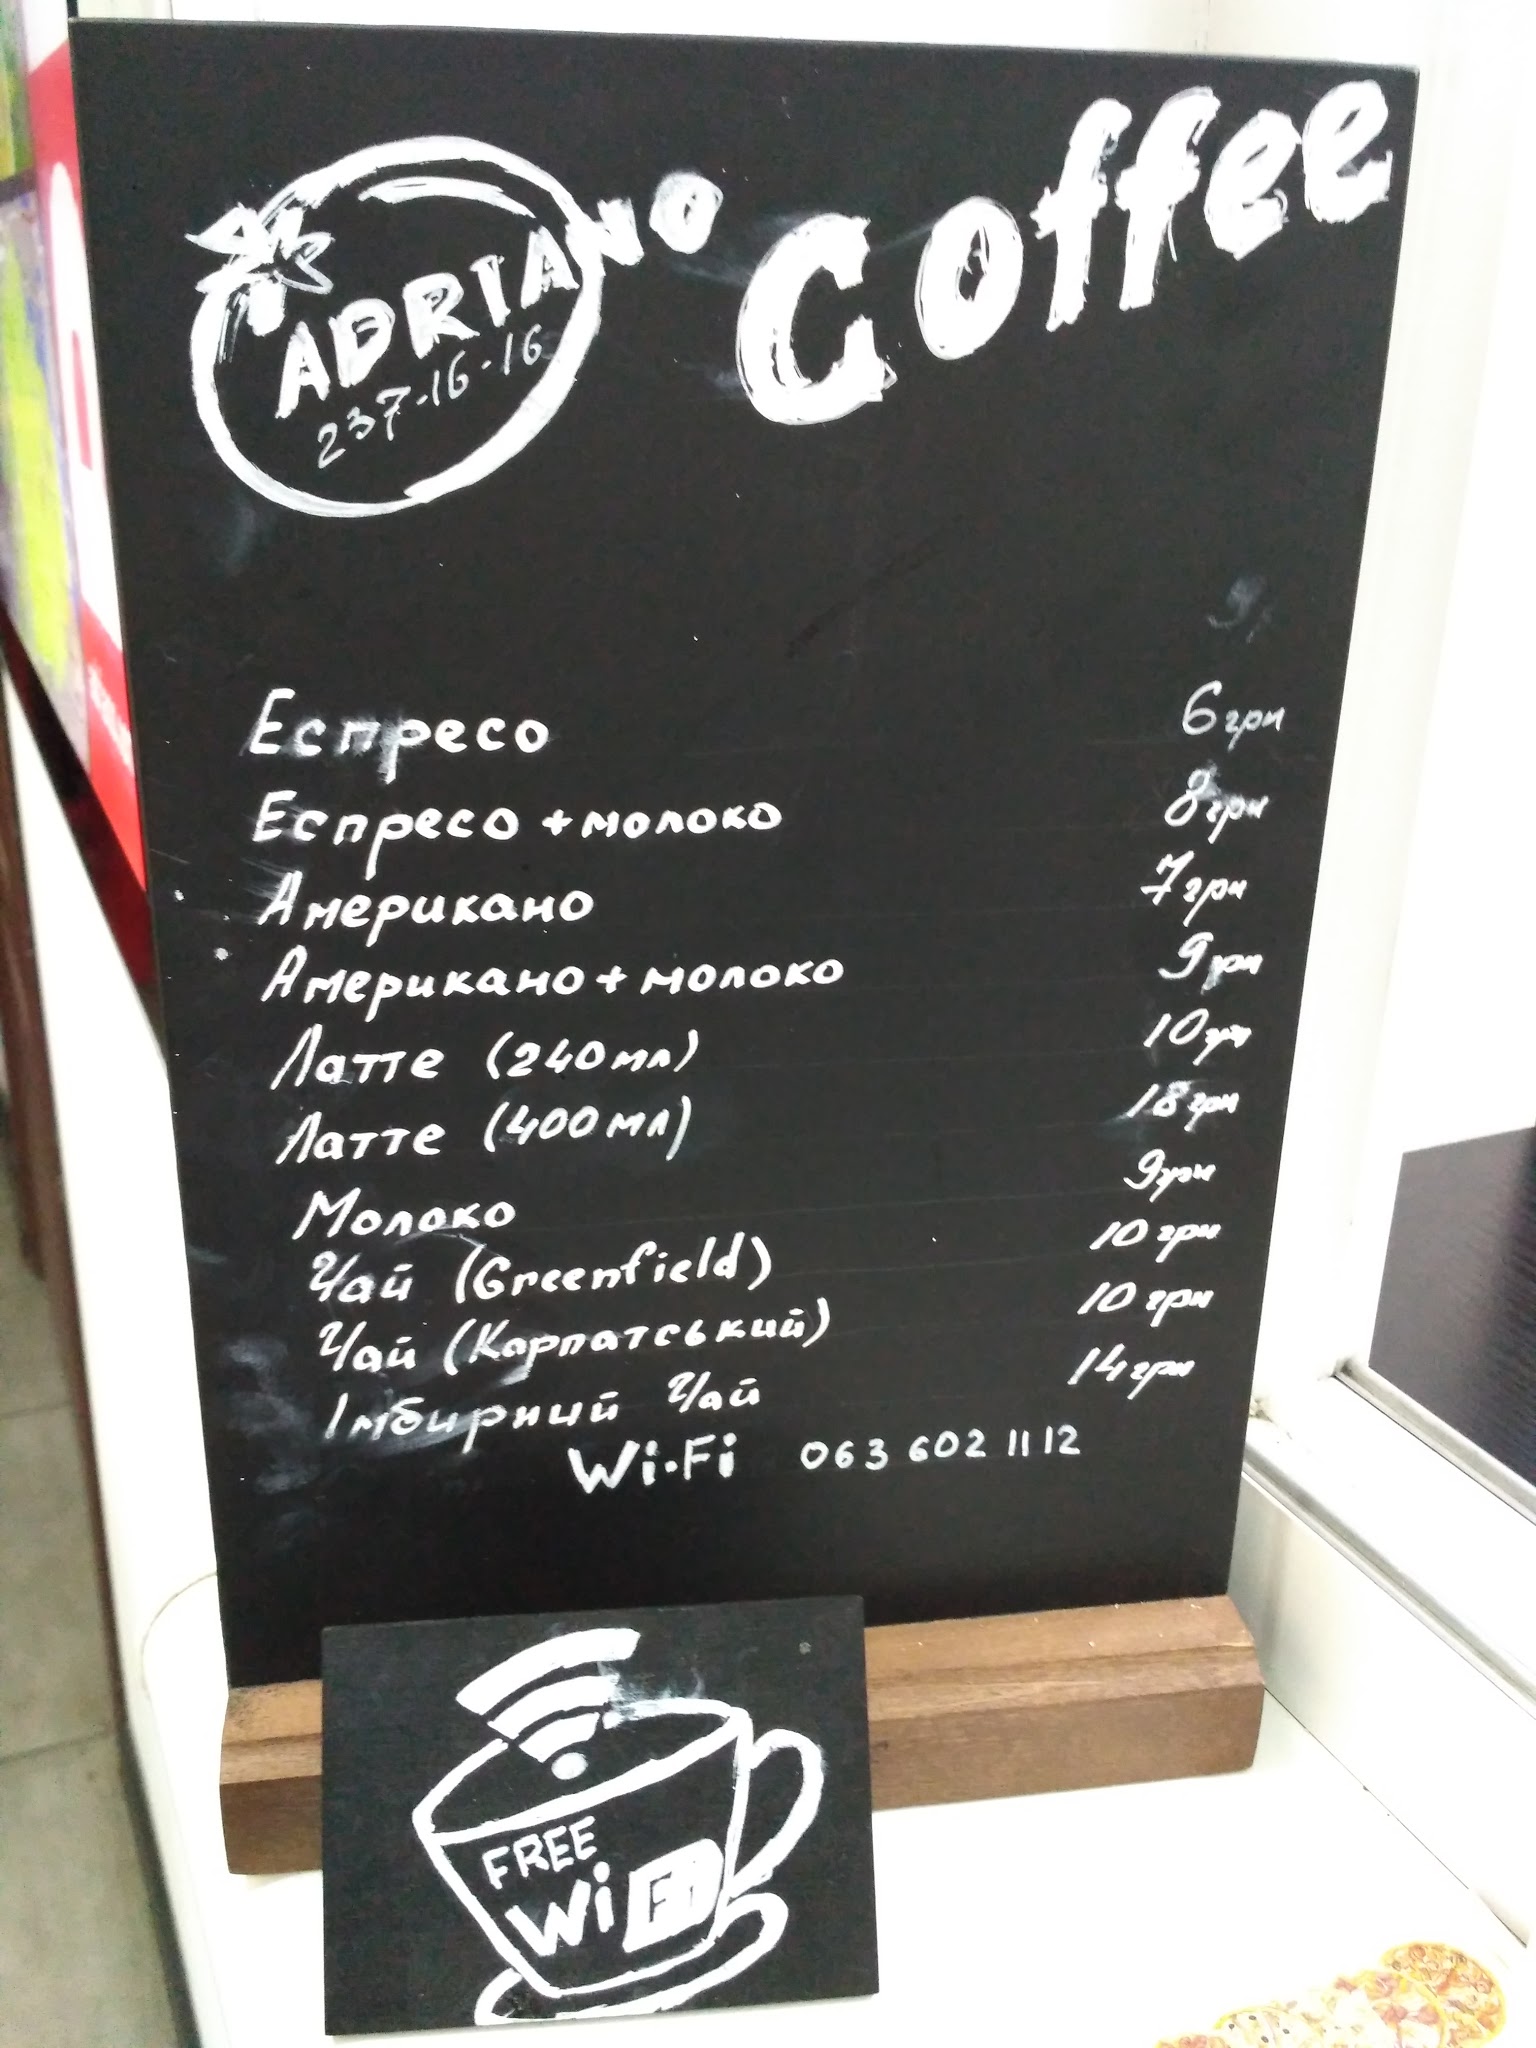 ADRIANO
237-16-16
Coffee
Еспресо 6 грн
Еспресо + молоко 8 грн
Американо 7 грн
Американо + молоко 9 грн
Латте (240 мл) 10 грн
Латте (400 мл) 18 грн
Молоко 9 грн
Чай (Greenfield) 10 грн
Чай (Карпатський) 10 грн
Імбирний Чай 14 грн
Wi-Fi 063 602 11 12
FREE
WiFi